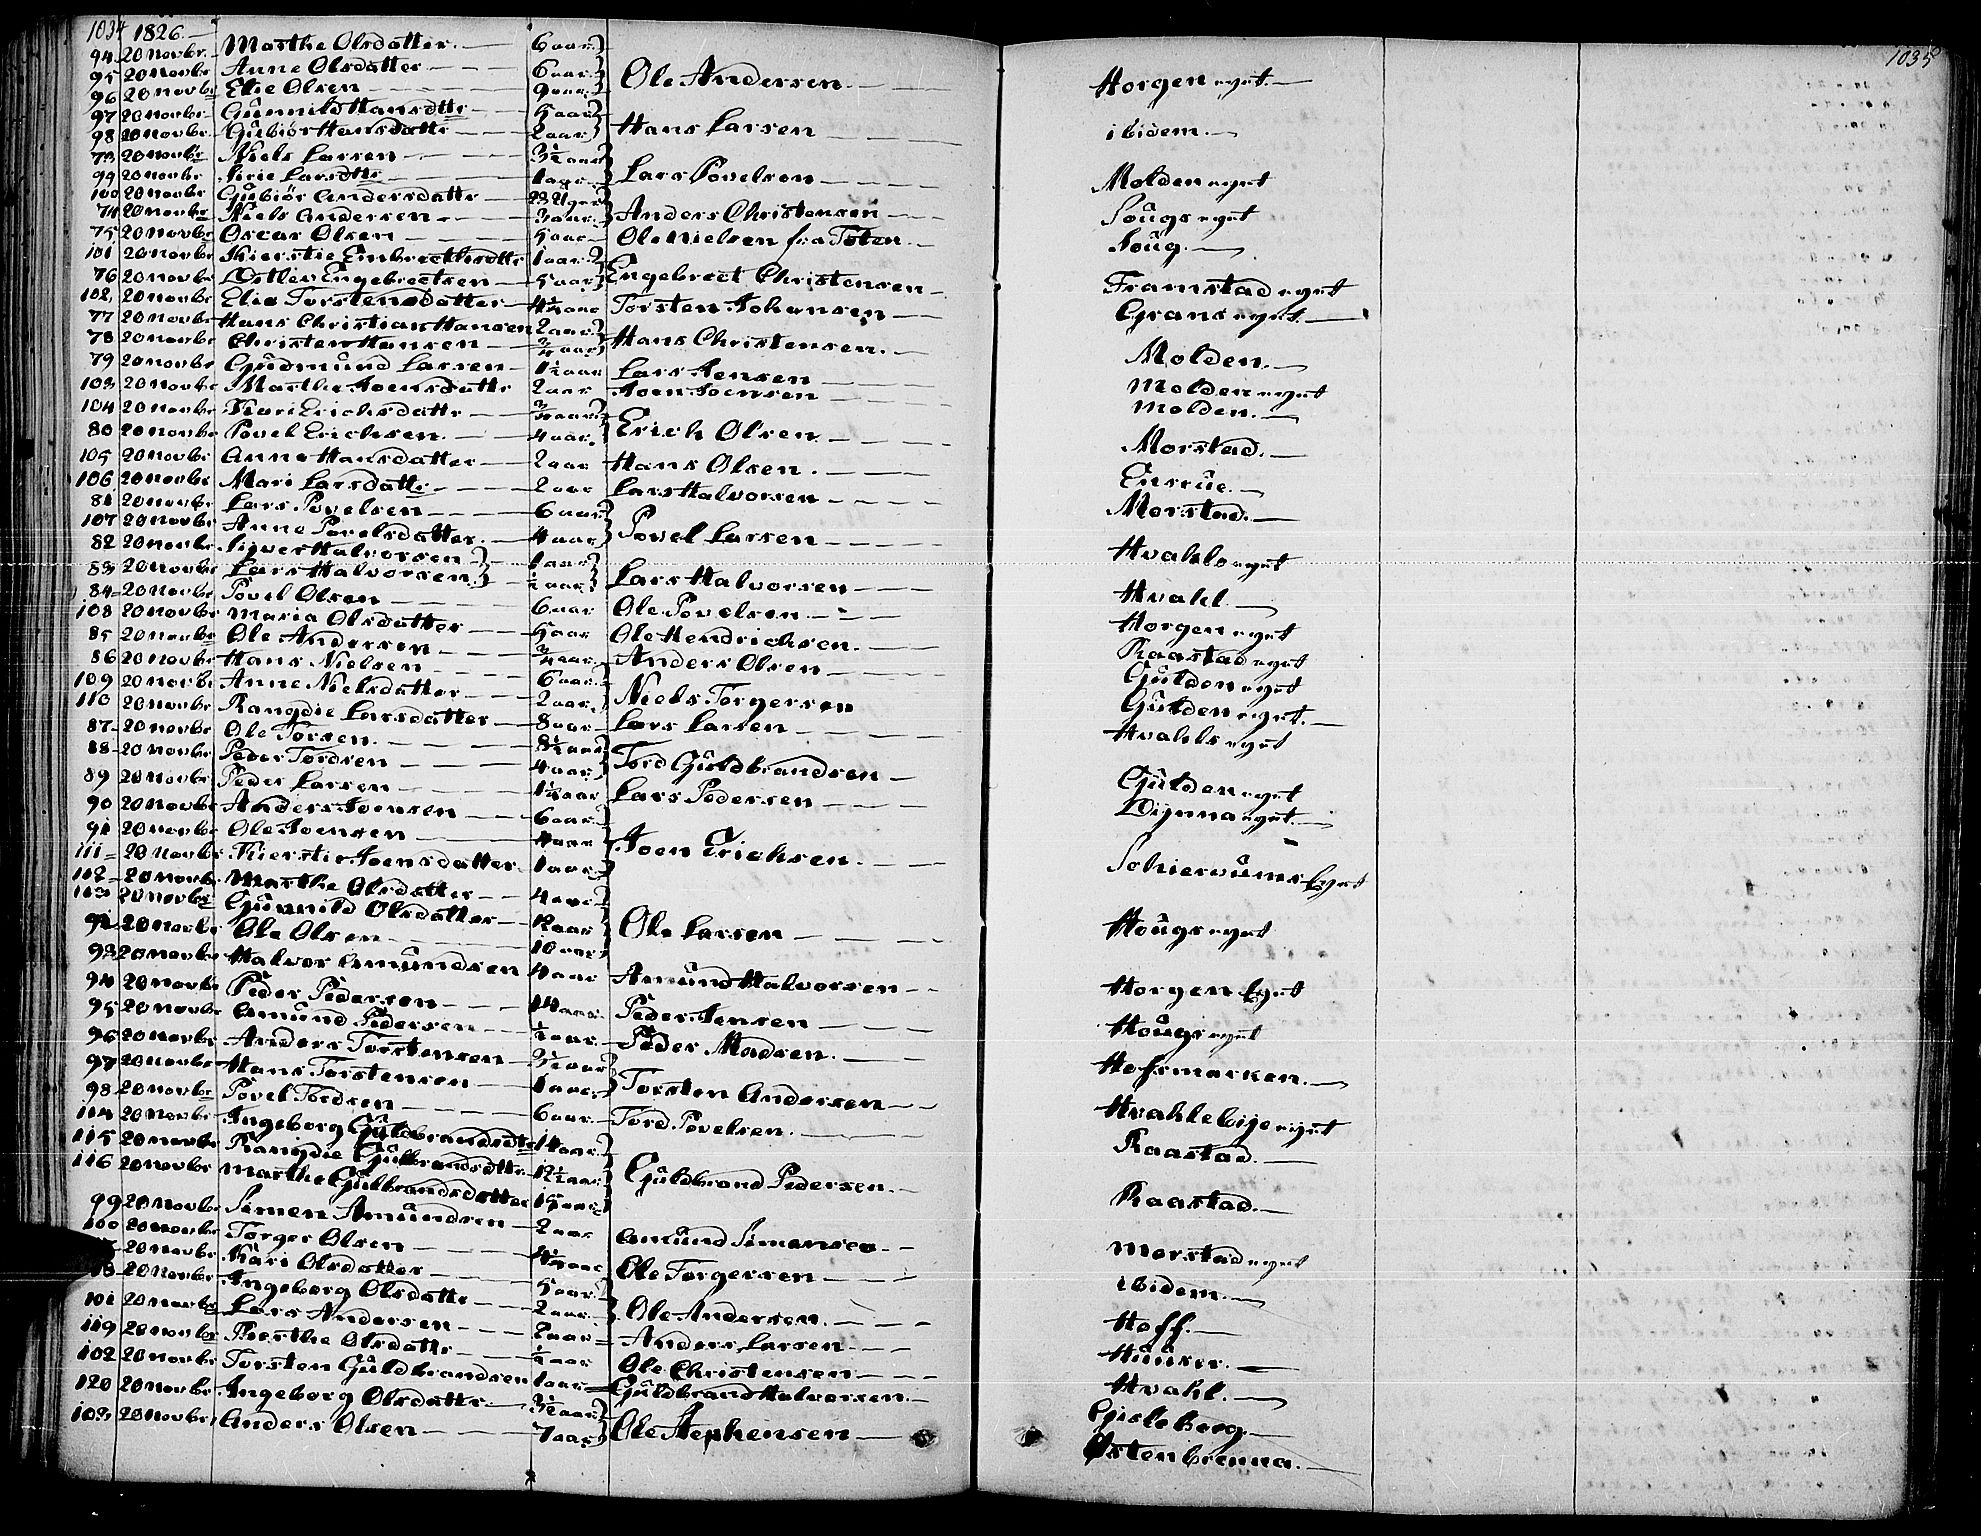 1034 1826.
94 20 Novbr. Marthe Olsdatter. 6 aar.
95 20 Novbr Anne Olsdatter 6 aar. Ole Andersen Horgen eyet.
96 20 Novbr Elie Olsen 9 aar.
97 20 Novbr. Gunnild Hansdttr 5 aar
98 20 Novbr. Gubiør Hansdattr 2 aar Hans Larsen ibidem.
73 20 Novbr Niels Larsen 3½ aar
99 20 Novbr Sirie Larsdttr 1 aar. Lars Povelsen Molden eyet
100 20 Novbr Gubiør Andersdattr 23 Uger
74 20 Novbr Niels Andersen 3 aar. Anders Christensen Sougs eyet
75 20 Novbr Oscar Olsen 5 aar Ole Nielsen fra Toten Soug.
101 20 Novbr Kierstie Embrecthsdttr 1 aar.
76 20 Novbr Østler Engebrectsen 5 aar Engebrect Christensen Framstad eyet
102, 20 Novbr Elie Torstensdatter 4½ aar Torsten Johansen Grans eyet.
77 20 Novbr Hans Christian Hansen 2 aar.
78 20 Novbr Christen Hansen ¾ aar Hans Christensen. Molden.
79 20 Novbr Gudmund Larsen 1½ aar Lars Jensen Molden eyet
103 20 Novbr Marthe Joensdattr 2 aar Joen Joensen Molden.
104 20 Novbr Kari Erichsdattr ¾ aar.
80 20 Novbr Povel Erichsen. 4 aar. Erich Olsen Morstad.
105 20 Novbr Anne Hansdatter 2 aar Hans Olsen.
106 20 Novbr Mari Larsdattr 2 aar Lars Halvorsen Morstad.
81 20 Novbr Lars Povelsen 6 aar.
107 20 Novbr Anne Povelsdatter. 4 aar Povel Larsen Hvahls eyet
82 20 Novbr Siver Halvorsen 1 aar
83 20 Novbr Lars Halvorsen. ½ aar. Lars Halvorsen Hvahl.
84 20 Novbr Povel Olsen 6 aar Ole Povelsen Horgen eyet
108 20 Novbr Maria Olsdatter 5 aar Ole Hendrichsen. Raastad eyet
85 20 Novbr Ole Andersen ¾ aar. Anders Olsen Gulden eyet
86 20 Novbr Hans Nielsen 6 aar.
109 20 Novbr Anne Nielsdatter 2 aar. Niels Torgersen Gulden eyet.
110 20 Novbr Rangdie Larsdatter 8 aar Lars Larsen Hvahls eyet
87 20 Novbr Ole Torsen. 8½ aar
88 20 Novbr Peder Tordsen 4 aar Tord Guldbrandsen Gulden eyet
89 20 Novbr Peder Larsen 1½ aar Lars Pedersen Dynna eyet.
90 20 Novbr Anders Joensen 6 aar
91 20 Novbr Ole Joensen 4 aar Joen Erichsen. Schiervums Eyet
111 20 Novbr Kierstie Joensdatter 1 aar
112 20 Novbr. Marthe Olsdatter 4 aar
113 20 Novbr Gunnild Olsdatter 12 aar Ole Larsen Hougs eyet
92 20 Novbr Ole Olsen 10 aar
93 20 Novbr Halvor Amundsen 4 aar Amund Halvorsen Horgen Eyet
94 20 Novbr Peder Pedersen 14 aar. Peder Jensen Hougs eyet
95 20 Novbr Amund Pedersen ½ aar. Peder Madsen. Hofsmarken.
96 20 Novbr Anders Torstensen 3½ aar
97 20 Novbr Hans Torstensen 1 aar. Torsten Andersen Hvahlebye eyet
98 20 Novbr Povel Tordsen 6 aar Tord Povelsen. Raastad.
114 20 Novbr Ingeborg Guldbrandsdtr 14 aar.
115 20 Novbr Rangdie Gulbrandsdttr 12½ aar. Guldbrand Pedersen. Raastad.
116 20 Novbr Marthe Gulbrandsdatter 15 aar
99 20 Novbr Simen Amundsen 2 aar Amund Simensen Morstad eyet
100 20 Novbr Torger Olsen 4½ aar Ole Torgersen ibidem.
20 Novbr Kari Olsdatter 5 aar
20 Novbr Ingeborg Olsdattr 2 aar. Ole Andersen. Hoff.
101 20 Novbr Lars Andersen 2 aar Anders Larsen
119 20 Novbr Marthe Olsdattr ½ aar Ole Christensen Hvahl.
102 20 Novbr Torsten Guldbrandsen 1 aar Guldbrand Halvorsen. Gisleberg.
120 20 Novbr Ingeborg Olsdattr. 3½ aar.
103 20 Novbr. Anders Olsen 7 aar. Ole Stephensen Østenbrenna.
1035